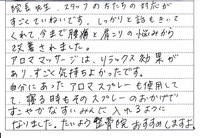 院長先生、スタッフの方たちの対応が
すごくていねいです。しっかりと話もきいて
くれて今まで腰痛と肩こりの悩みから
改善されました。
アロママッサージは、リラックス効果が
あり、すごく気持ちよかったです。
自分にあったアロマスプレーも使用して
て、寝る時もそのスプレーのおかげで
すこやかなすいみんに入れるように
なりました。たいよう整骨院おすすめしますよ